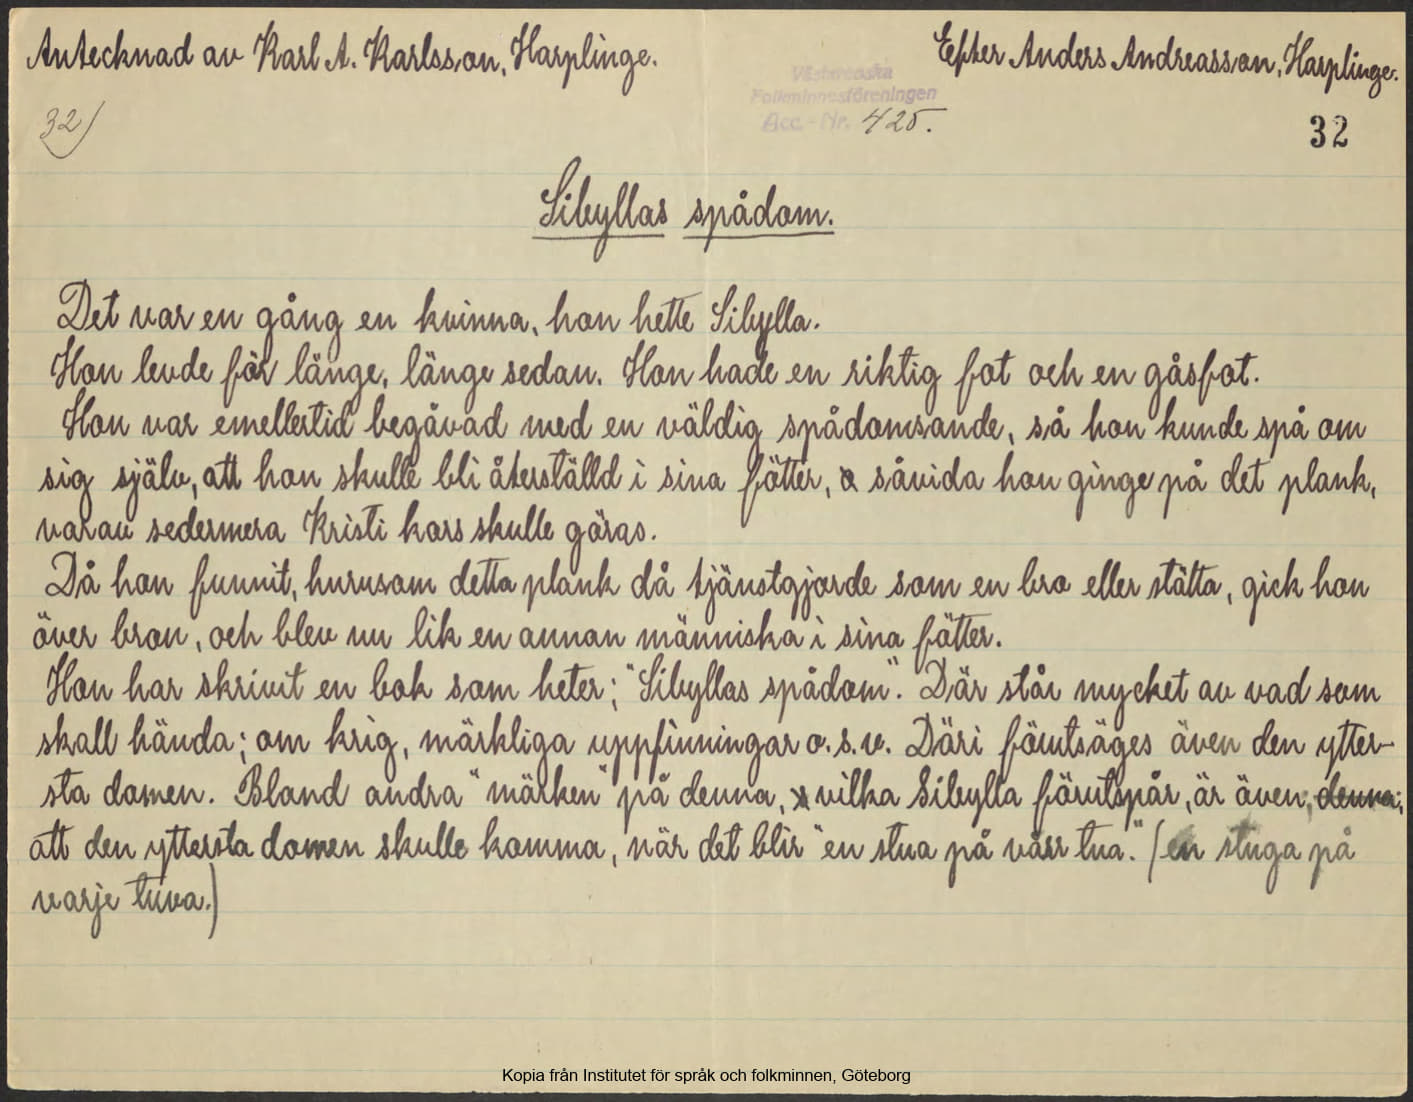 Antecknad av Karl A. Karlsson, Harplinge.
Efter Anders Andreasson, Harplinge.
Västsvenska
Folkminnesföreningen
Acc.-Nr. 425.
32)
32
Sibyllas spådom.
Det var en gång en kvinna, hon hette Sibylla.
Hon levde för länge, länge sedan. Hon hade en riktig fot och en gåsfot.
Hon var emellertid begåvad med en väldig spådomsande, så hon kunde spå om
sig själv, att hon skulle bli återställd i sina fötter, såvida hon ginge på det plank,
varav sedermera Kristi kors skulle göras.
Då hon funnit, hurusom detta plank då tjänstgjorde som en bro eller stätta, gick hon
över bron, och blev nu lik en annan människa i sina fötter.
Hon har skrivit en bok som heter; "Sibyllas spådom". Där står mycket av vad som
skall hända; om krig, märkliga uppfinningar o.s.v. Däri förutsäges även den ytter-
sta domen. Bland andra "märken" på denna, vilka Sibylla förutspår, är även, denna;
att den yttersta domen skulle komma, när det blir "en stua på värr tua." (en stuga på
varje tuva.)
Kopia från Institutet för språk och folkminnen, Göteborg